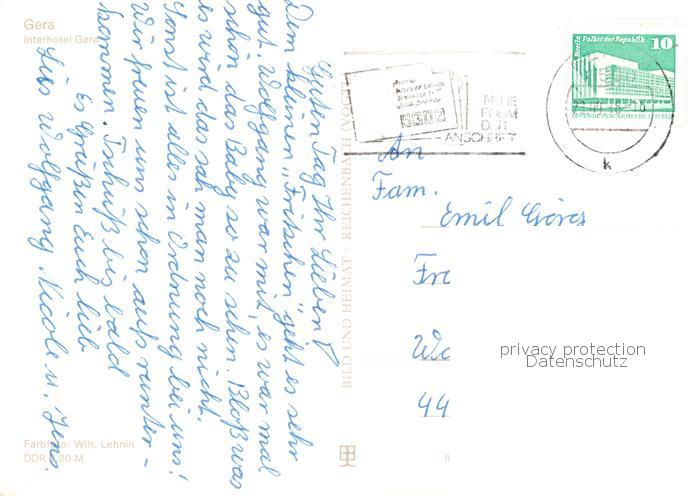 Gera
Interhotel Gera
Guten Tag Ihr Lieben!
Dem kleinen "Fritschen" geht es sehr
gut. Wolfgang war mit, es war mal
schön das Baby so zu sehen. Bloß was
es wird das sah man noch nicht.
Sonst ist alles in Ordnung bei uns!
Wir freuen uns schon aufs runter-
kommen. Tschüß bis bald
es grüßen Euch lieb
Wolfgang, Nicole u. Jens.
Farbfoto: Wils, Lehnin
DDR 0,20 M
BILD UND HEIMAT · REICHENBACH (VOGTL)
NEUE
FORM
DER
ANSCHRIFT
5302
Berlin Palast der Republik
10
DEUTSCHE DEMOKRATISCHE REPUBLIK
k
An
Fam.
Emil
Fr
W
44
privacy protection
Datenschutz
II